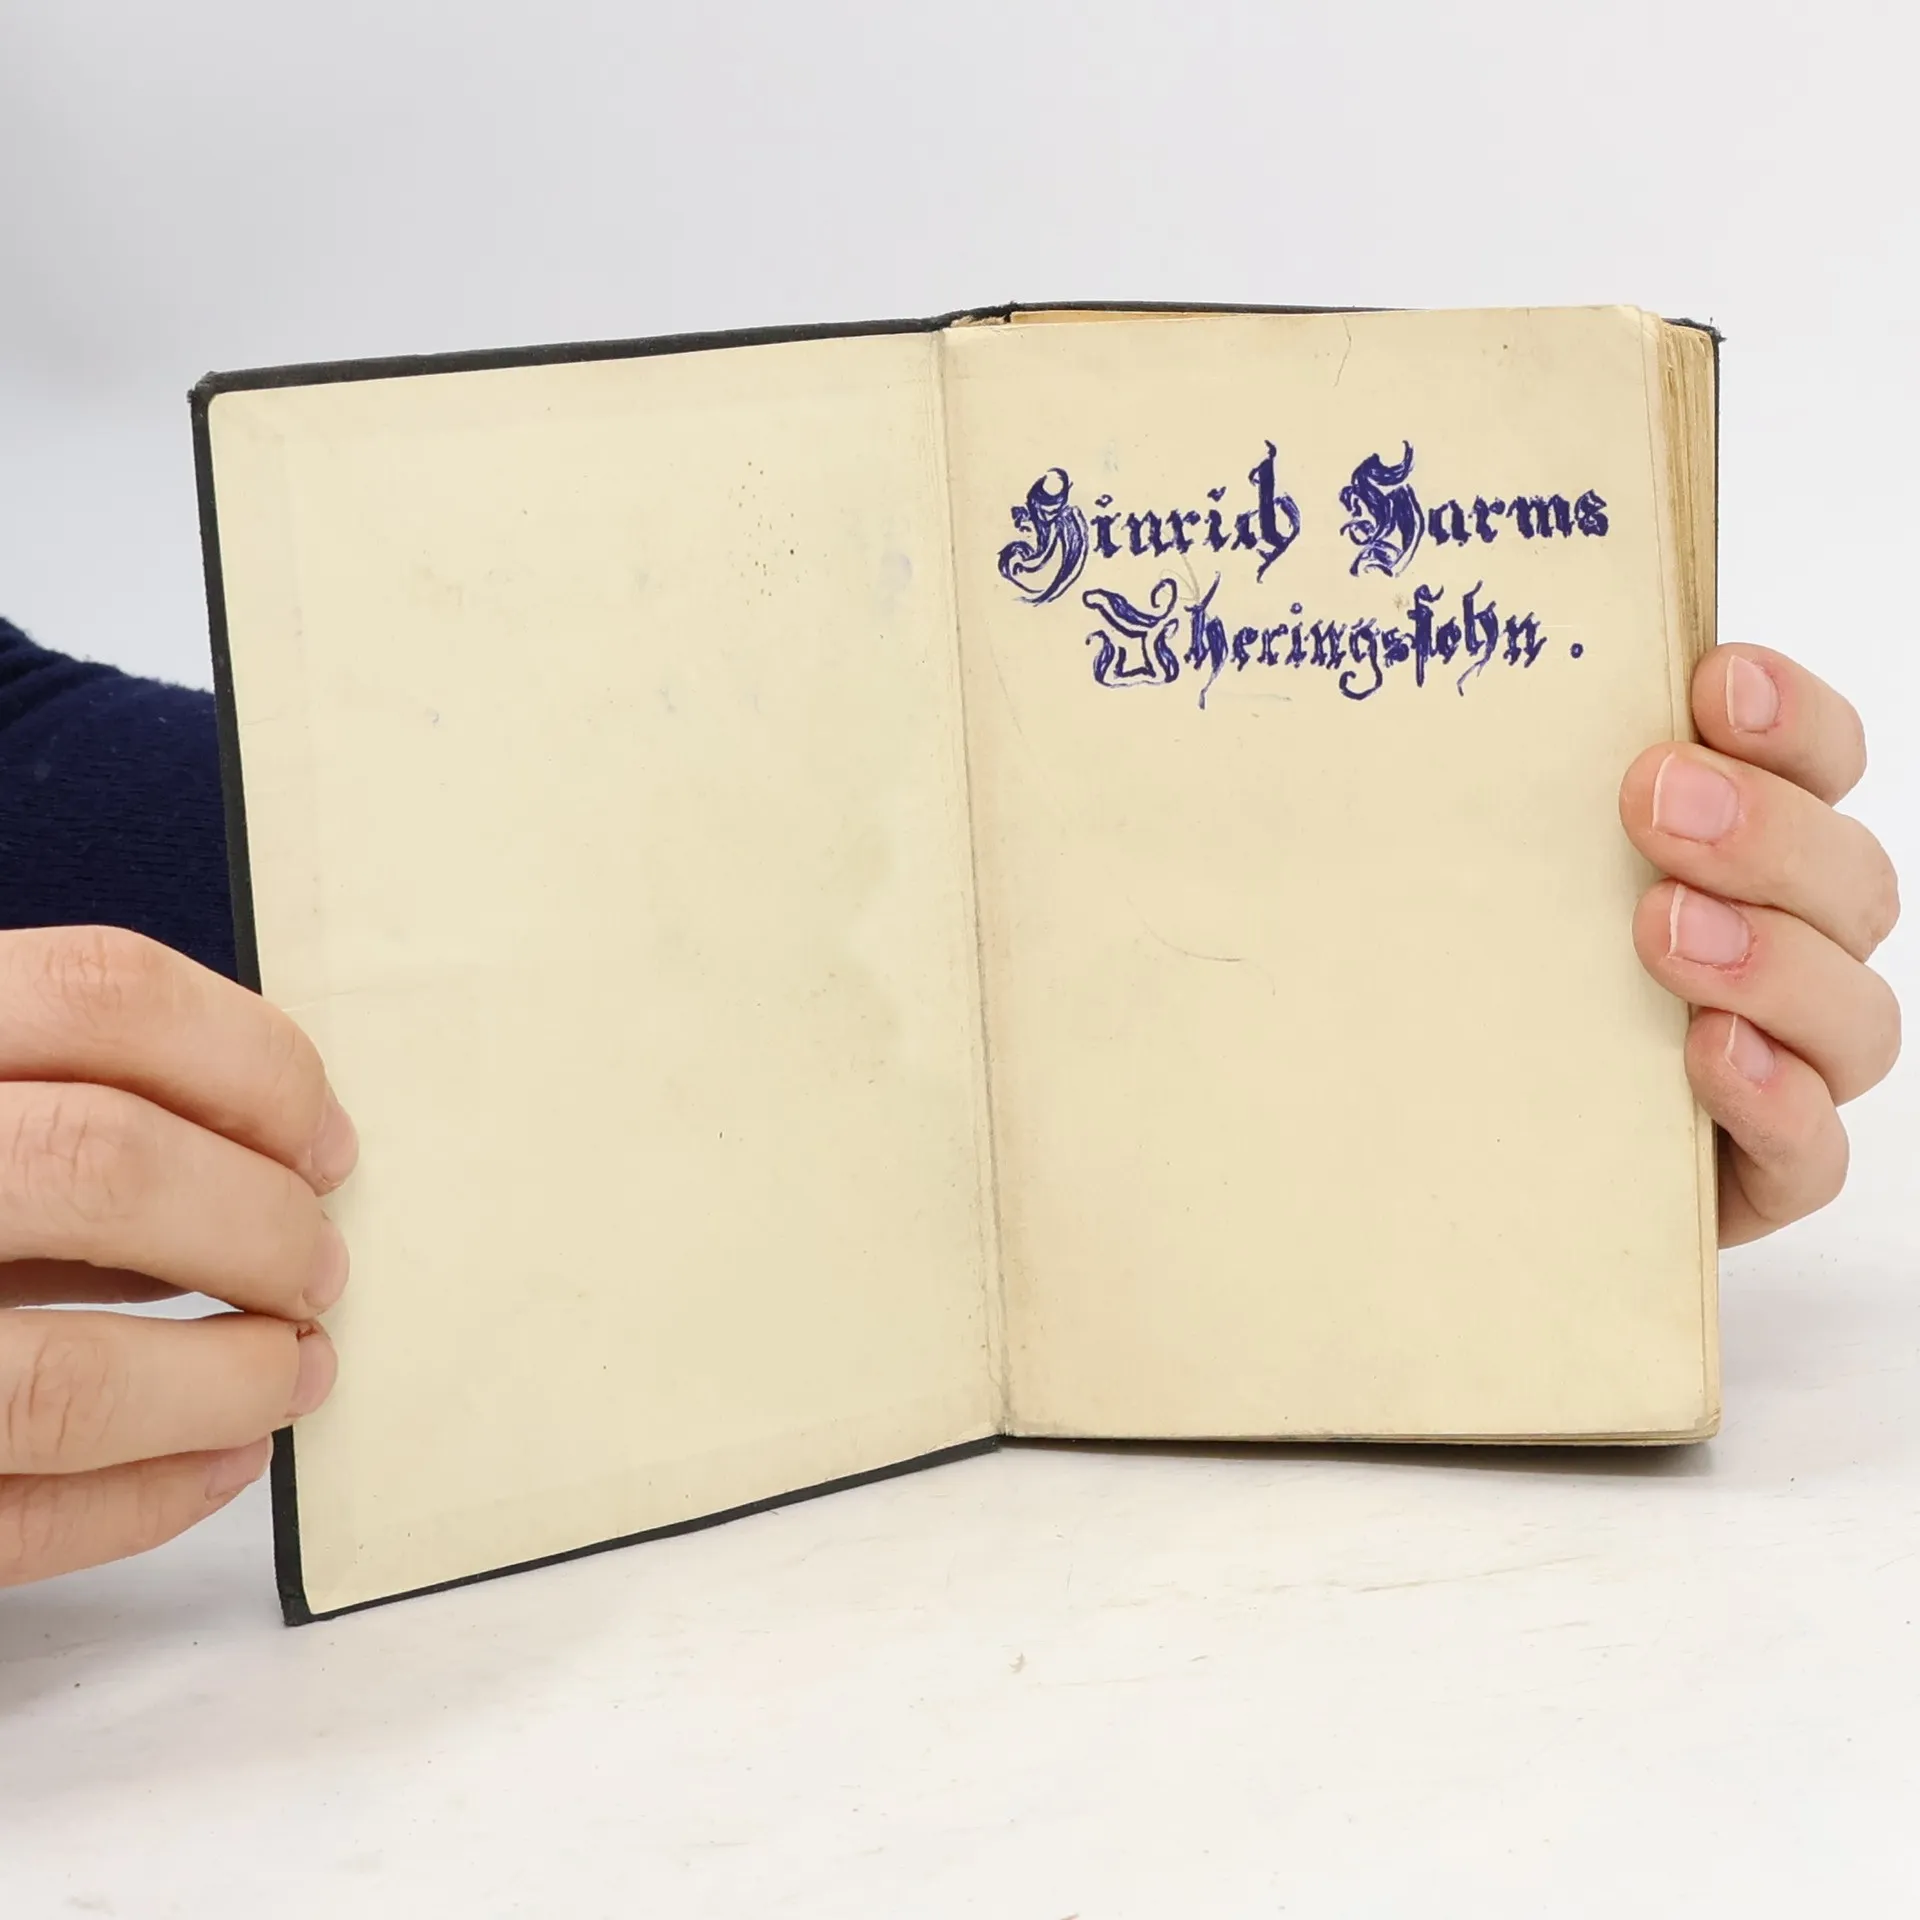 Hinrich Harms
Iheringsfehn.